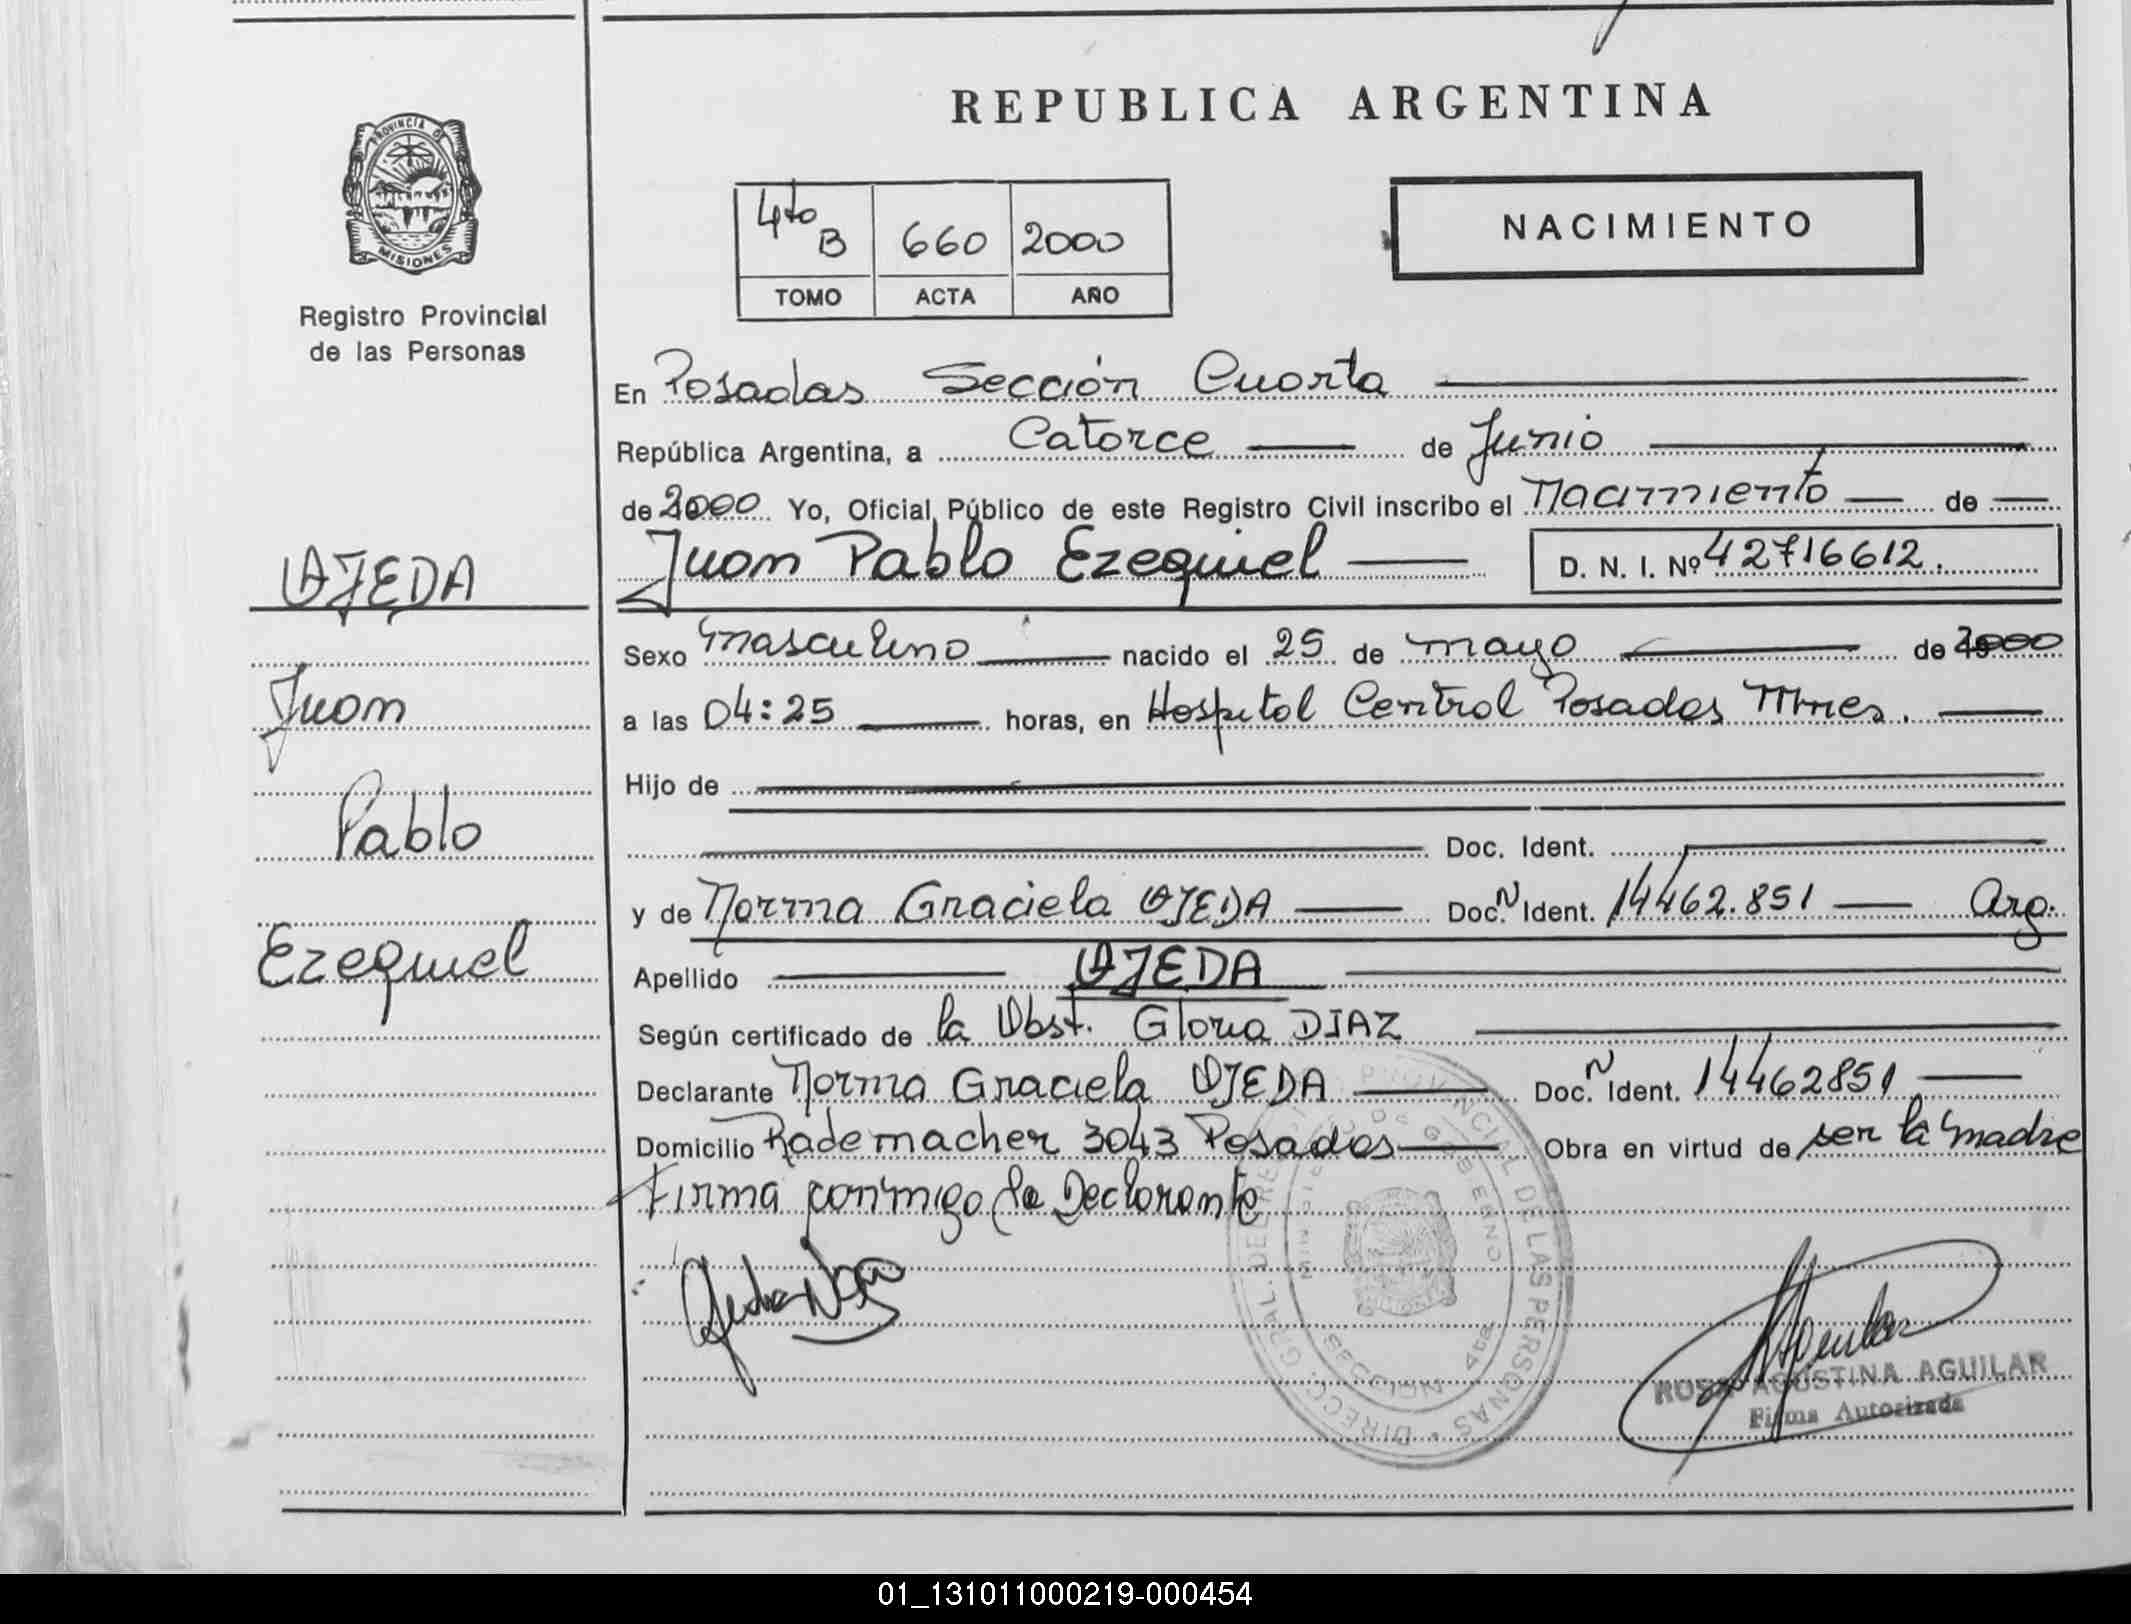 REPUBLICA ARGENTINA
PROVINCIA DE
MISIONES
Registro Provincial
de las Personas
4to B 660 2000
TOMO ACTA AÑO
NACIMIENTO
En Posadas Sección Cuarta
República Argentina, a Catorce de Junio
de 2000 Yo, Oficial Público de este Registro Civil inscribo el Nacimiento de
OJEDA
Juan Pablo Ezequiel D. N. I. Nº 42716612.
Sexo masculino nacido el 25 de mayo de 2000
Juan
a las 04:25 horas, en Hospital Central Posadas Mnes.
Hijo de
Pablo
Doc. Ident.
y de Norma Graciela OJEDA Doc. N Ident. 14462.851 Arg.
Ezequiel
Apellido OJEDA
Según certificado de la Obst. Gloria DIAZ
Declarante Norma Graciela OJEDA Doc. N Ident. 14462851
Domicilio Rademacher 3043 Posadas Obra en virtud de ser la madre
Firma conmigo la Declarante
DIRECC. GRAL. DEL REG. PROVINCIAL DE LAS PERSONAS
MINISTERIO DE GOBIERNO
SECCION 4ta
ROSA AGUSTINA AGUILAR
Firma Autorizada
01_131011000219-000454